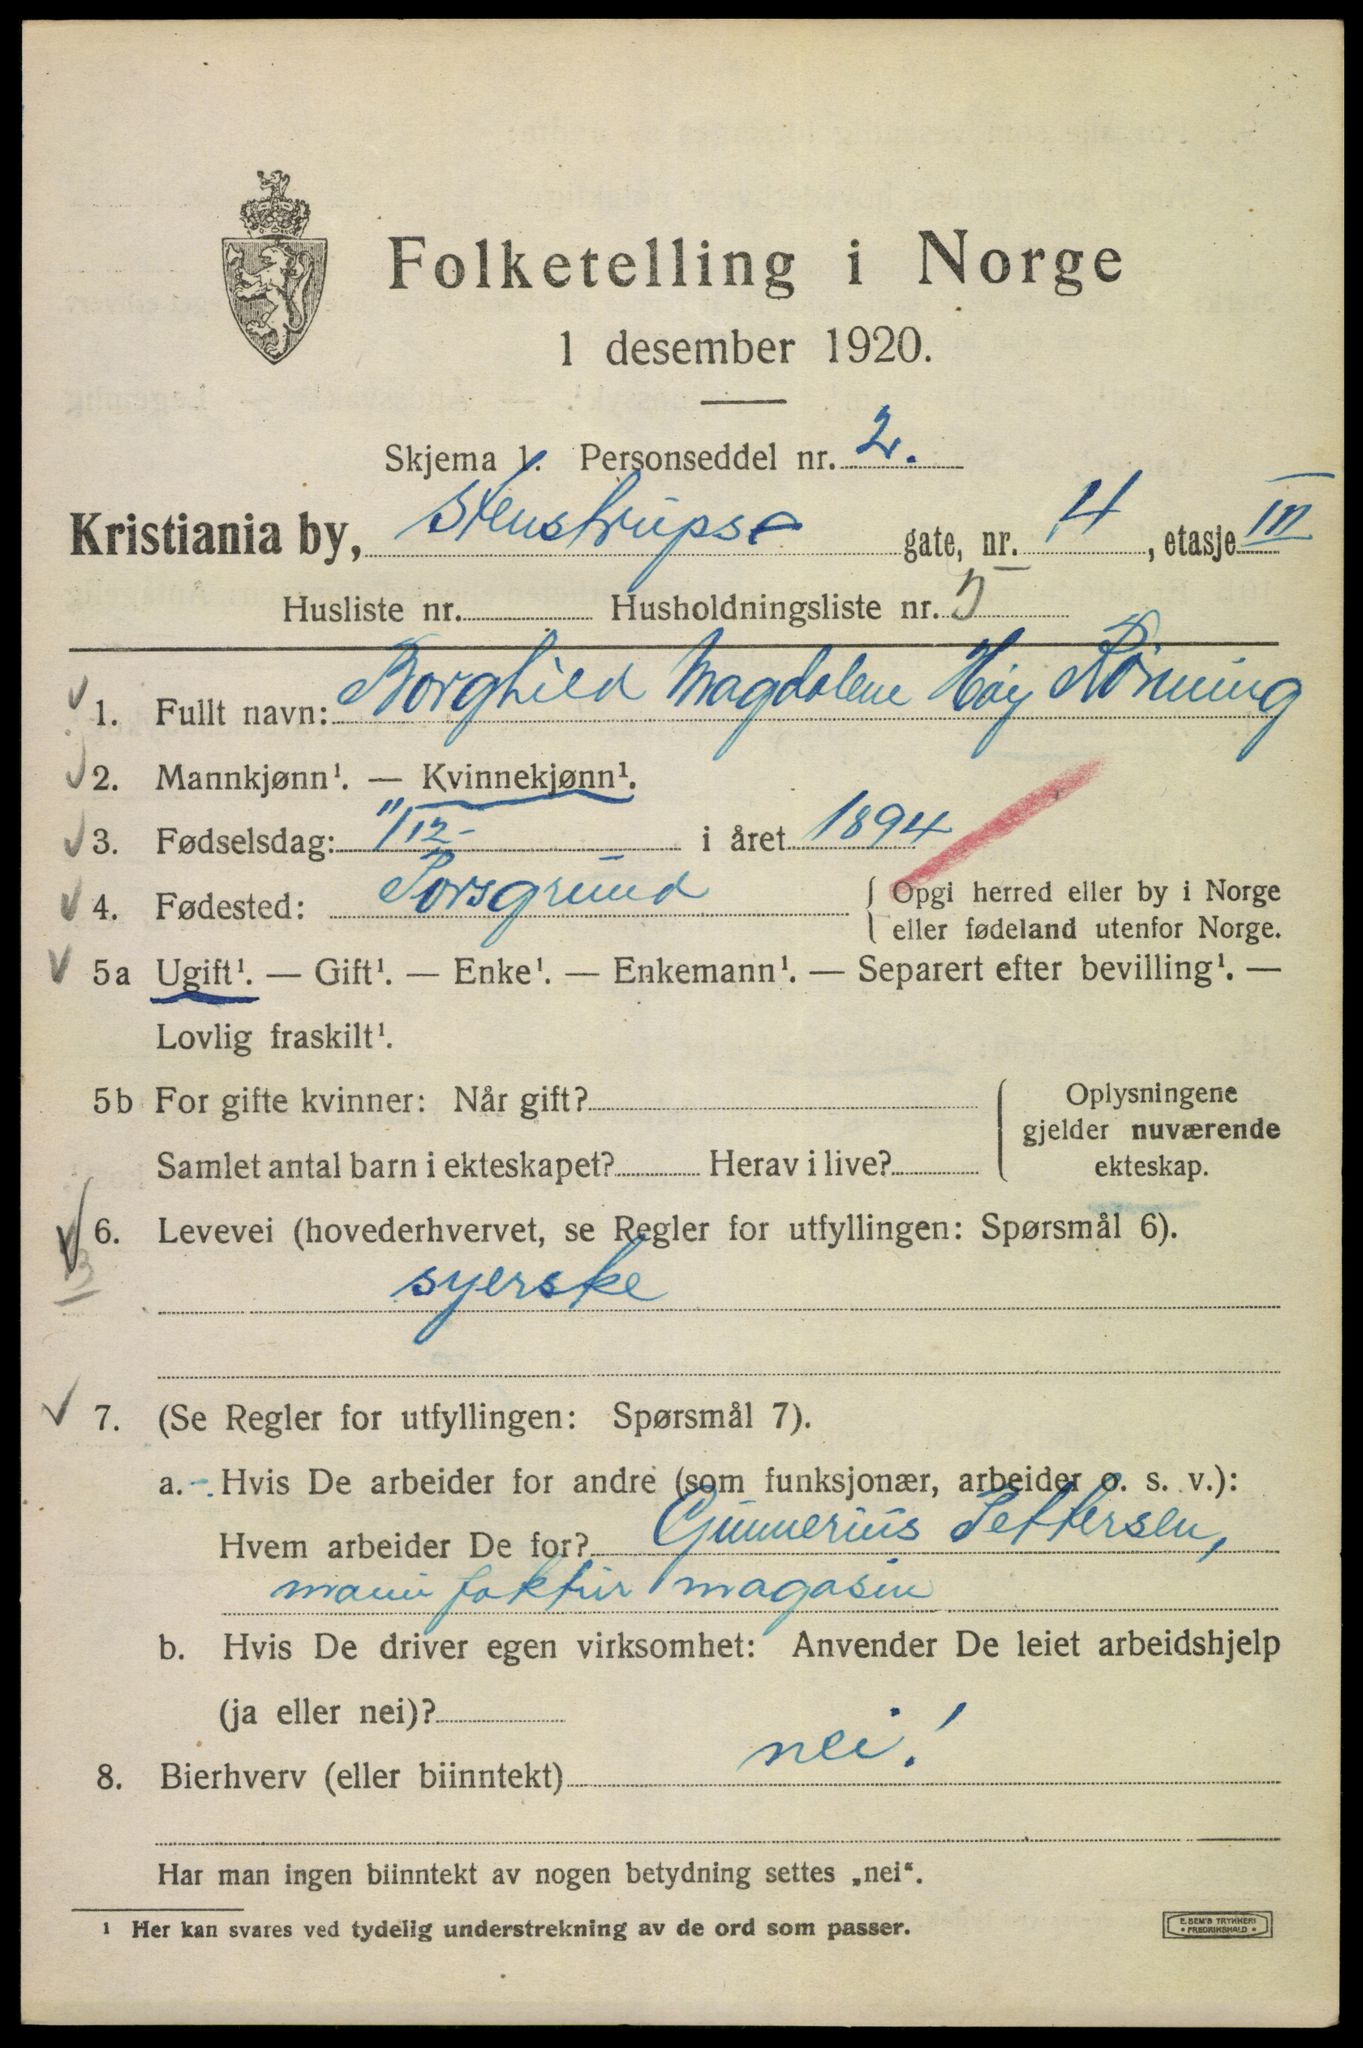 Folketelling i Norge
1 desember 1920.
Skjema 1. Personseddel nr. 2.
Kristiania by, Stenstrups gate, nr. 4, etasje III
Husliste nr. Husholdningsliste nr. 5
1. Fullt navn: Borghild Magdalene Høy Rønning
2. Mannkjønn¹. — Kvinnekjønn¹.
3. Fødselsdag: "/12- i året 1894
4. Fødested: Porsgrund { Opgi herred eller by i Norge
eller fødeland utenfor Norge.
5a Ugift¹. — Gift¹. — Enke¹. — Enkemann¹. — Separert efter bevilling¹. —
Lovlig fraskilt¹.
5b For gifte kvinner: Når gift? { Oplysningene
gjelder nuværende
Samlet antal barn i ekteskapet? Herav i live? ekteskap.
6. Levevei (hovederhvervet, se Regler for utfyllingen: Spørsmål 6).
syerske
7. (Se Regler for utfyllingen: Spørsmål 7).
a. Hvis De arbeider for andre (som funksjonær, arbeider o. s. v.):
Hvem arbeider De for? Gunnerius Pettersen,
manufaktur magasin
b. Hvis De driver egen virksomhet: Anvender De leiet arbeidshjelp
(ja eller nei)?
8. Bierhverv (eller biinntekt) nei!
Har man ingen biinntekt av nogen betydning settes „nei“.
¹ Her kan svares ved tydelig understrekning av de ord som passer.
E. SEM'S TRYKKERI
FREDRIKSHALD